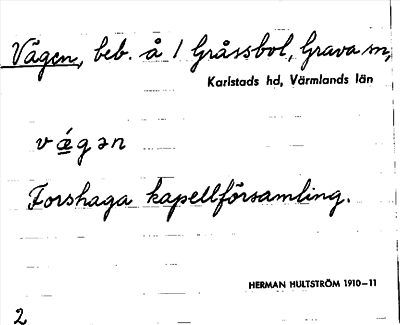 Vägen, beb. å 1 Gråssbol, Grava sn,
Karlstads hd, Värmlands län
v ǽ g ə n
Forshaga kapellförsamling.
HERMAN HULTSTRÖM 1910–11
2